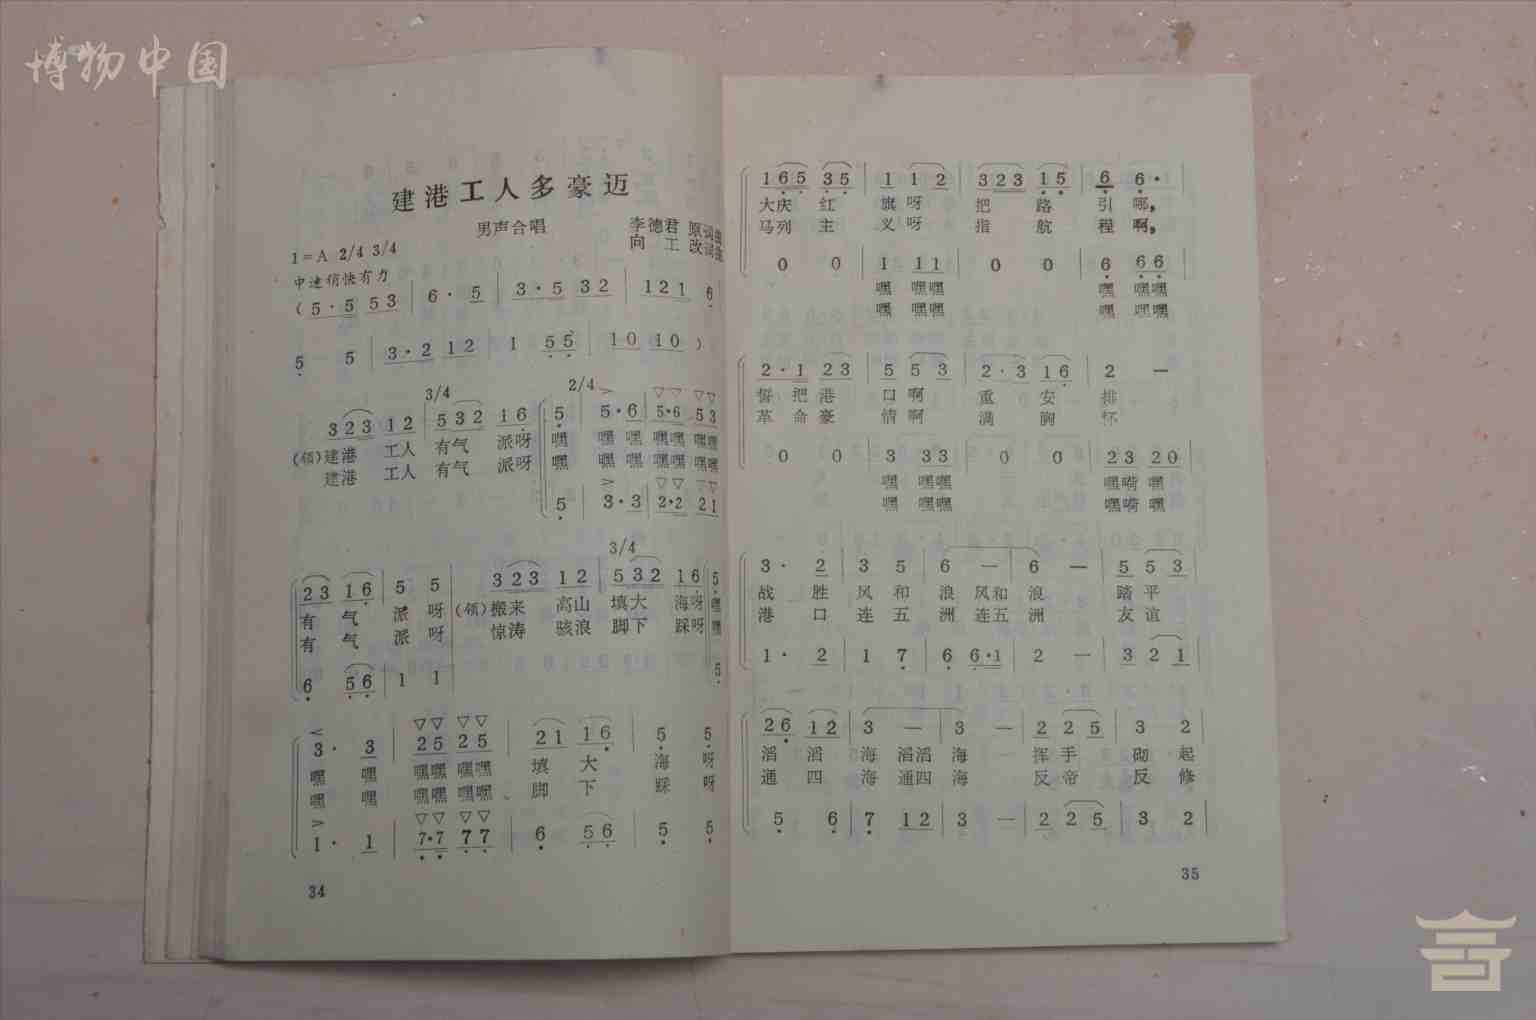 博物中国
建港工人多豪迈
男声合唱
李德君 原词曲
向 工 改词曲
1=A 2/4 3/4
中速稍快有力
( 5·5 53 | 6· 5 | 3·5 32 | 121 6
5 5 | 3·2 12 | 1 55 | 10 10 )
3/4 2/4
323 12 | 532 16 | 5 | 5·6 | 5·6 53
(领)建港 工人 有气 派呀 嘿 嘿 嘿 嘿嘿 嘿嘿
建港 工人 有气 派呀 嘿 嘿 嘿 嘿嘿 嘿嘿
5 | 3·3 | 2·2 21
3/4
23 16 | 5 5 | 323 12 | 532 16 | 5
有 气 派 呀 (领)搬来 高山 填大 海呀 嘿
有 气 派 呀 惊涛 骇浪 脚下 踩呀 嘿
6 56 | 1 1 | 5
3· 3 | 25 25 | 21 16 | 5 5
嘿 嘿 嘿嘿 嘿嘿 填 大 海 呀
嘿 嘿 嘿嘿 嘿嘿 脚 下 踩 呀
1· 1 | 7·7 77 | 6 56 | 5 5
34
165 35 | 1 12 | 323 15 | 6 6·
大庆 红 旗 呀 把 路 引 哪,
马列 主 义 呀 指 航 程 啊,
0 0 | 1 11 | 0 0 | 6 66
嘿 嘿嘿 嘿 嘿嘿
嘿 嘿嘿 嘿 嘿嘿
2·1 23 | 5 53 | 2·3 16 | 2 —
誓 把 港 口 啊 重 安 排
革 命 豪 情 啊 满 胸 怀
0 0 | 3 33 | 0 0 | 23 20
嘿 嘿嘿 嘿嗬 嘿
嘿 嘿嘿 嘿嗬 嘿
3· 2 | 3 5 | 6 — | 6 — | 5 53
战 胜 风 和 浪 风和 浪 踏 平
港 口 连 五 洲 连五 洲 友 谊
1· 2 | 1 7 | 6 6·1 | 2 — | 3 21
26 12 | 3 — | 3 — | 2 25 | 3 2
滔 滔 海 滔滔 海 挥 手 砌 起
通 四 海 通四 海 反 帝 反 修
5 6 | 7 12 | 3 — | 2 25 | 3 2
35